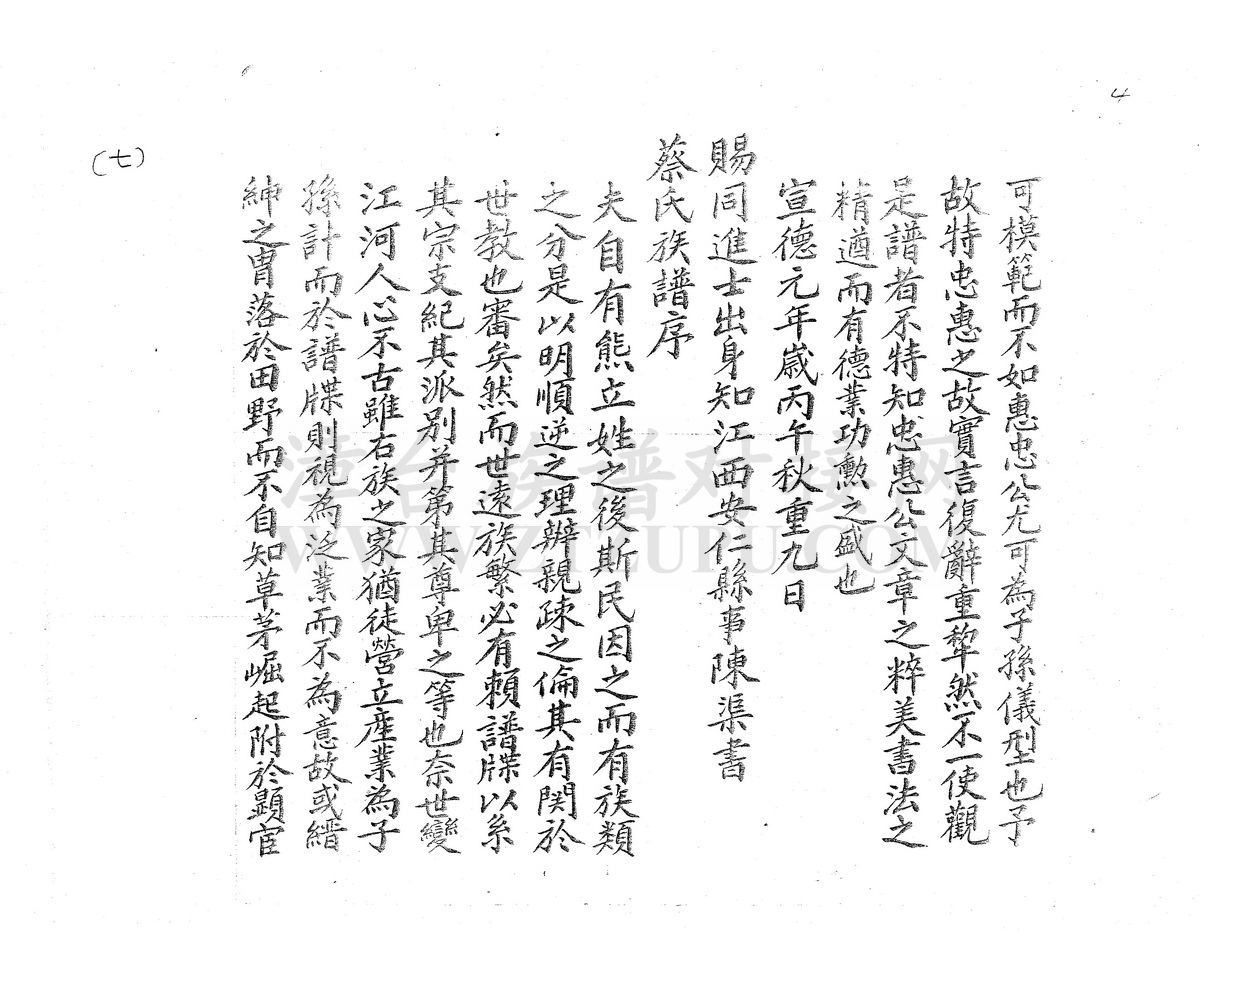 4
可模範而不如惠忠公尤可為子孫儀型也予
故特忠惠之故實言復辭重犂然不一使觀
是譜者不特知忠惠公文章之粹美書法之
精遒而有德業功勲之盛也
宣德元年歲丙午秋重九日
賜同進士出身知江西安仁縣事陳渠書
蔡氏族譜序
夫自有熊立姓之後斯民因之而有族類
之分是以明順逆之理辨親疎之倫其有関於
世教也審矣然而世遠族繁必有賴譜牒以系
其宗支紀其派別并第其尊卑之等也奈世變
江河人心不古雖右族之家猶徒營立產業為子
孫計而於譜牒則視為泛業而不為意故或縉
紳之冑落於田野而不自知草茅崛起附於顯宦
(七)
漳台族谱对接网
WWW.ZTZUPU.COM